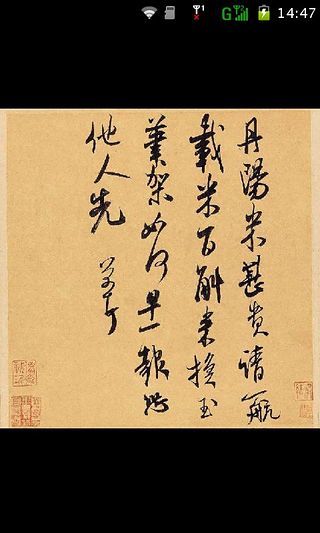 14:47
丹陽米甚貴請一航
載米百斛來換玉
筆架如何早一報恐
他人先
芾頓首